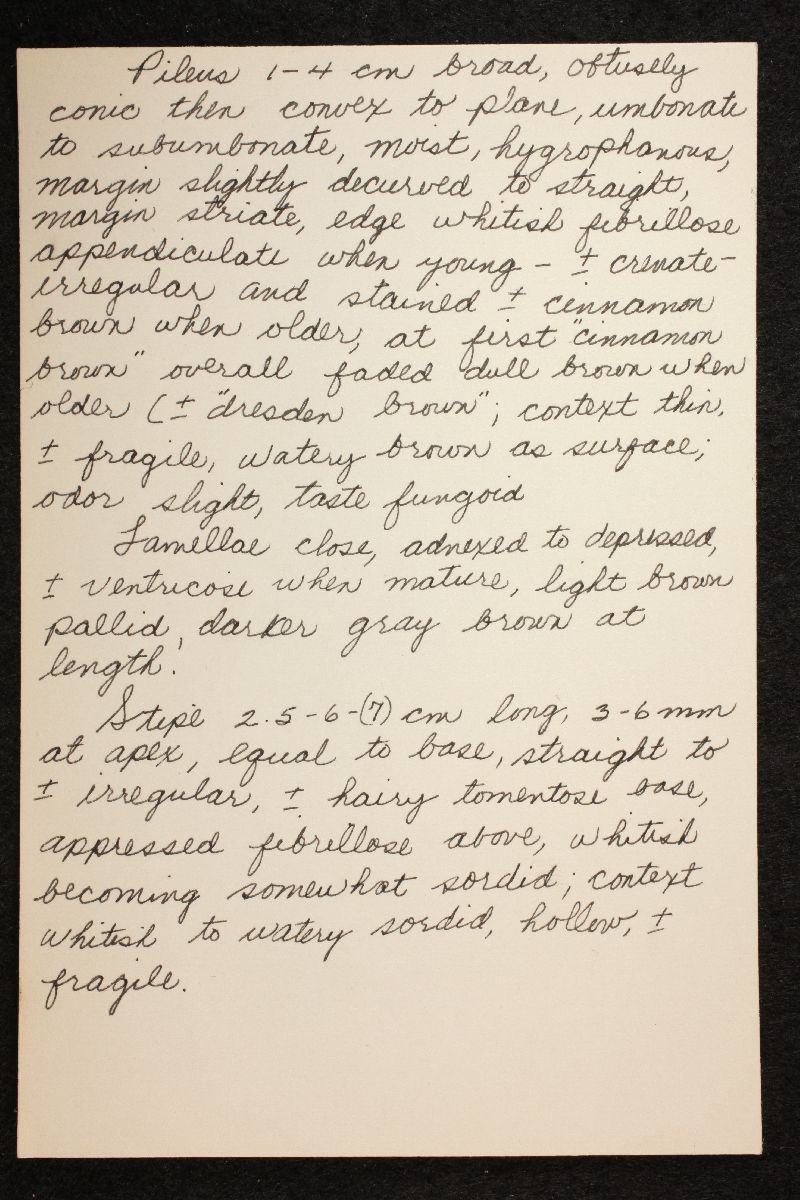 Pileus 1-4 cm broad, obtusely
conic then convex to plane, umbonate
to subumbonate, moist, hygrophanous,
margin slightly decurved to straight,
margin striate, edge whitish fibrillose
appendiculate when young - ± crenate-
irregular and stained ± cinnamon
brown when older, at first "cinnamon
brown" overall faded dull brown when
older (± "dresden brown"; context thin,
± fragile, watery brown as surface;
odor slight, taste fungoid
Lamellae close, adnexed to depressed,
± ventricose when mature, light brown
pallid, darker gray brown at
length.
Stipe 2.5-6-(7) cm long, 3-6 mm
at apex, equal to base, straight to
± irregular, ± hairy tomentose base,
appressed fibrillose above, whitish
becoming somewhat sordid; context
whitish to watery sordid, hollow, ±
fragile.